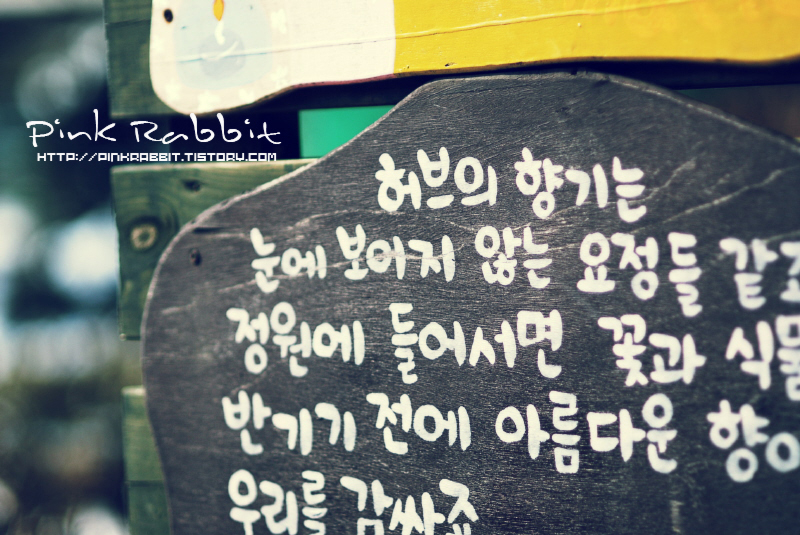 Pink Rabbit
HTTP://PINKRABBIT.TISTORY.COM
허브의 향기는
눈에 보이지 않는 요정들 같죠
정원에 들어서면 꽃과 식물
반기기 전에 아름다운 향이
우리를 감싸죠